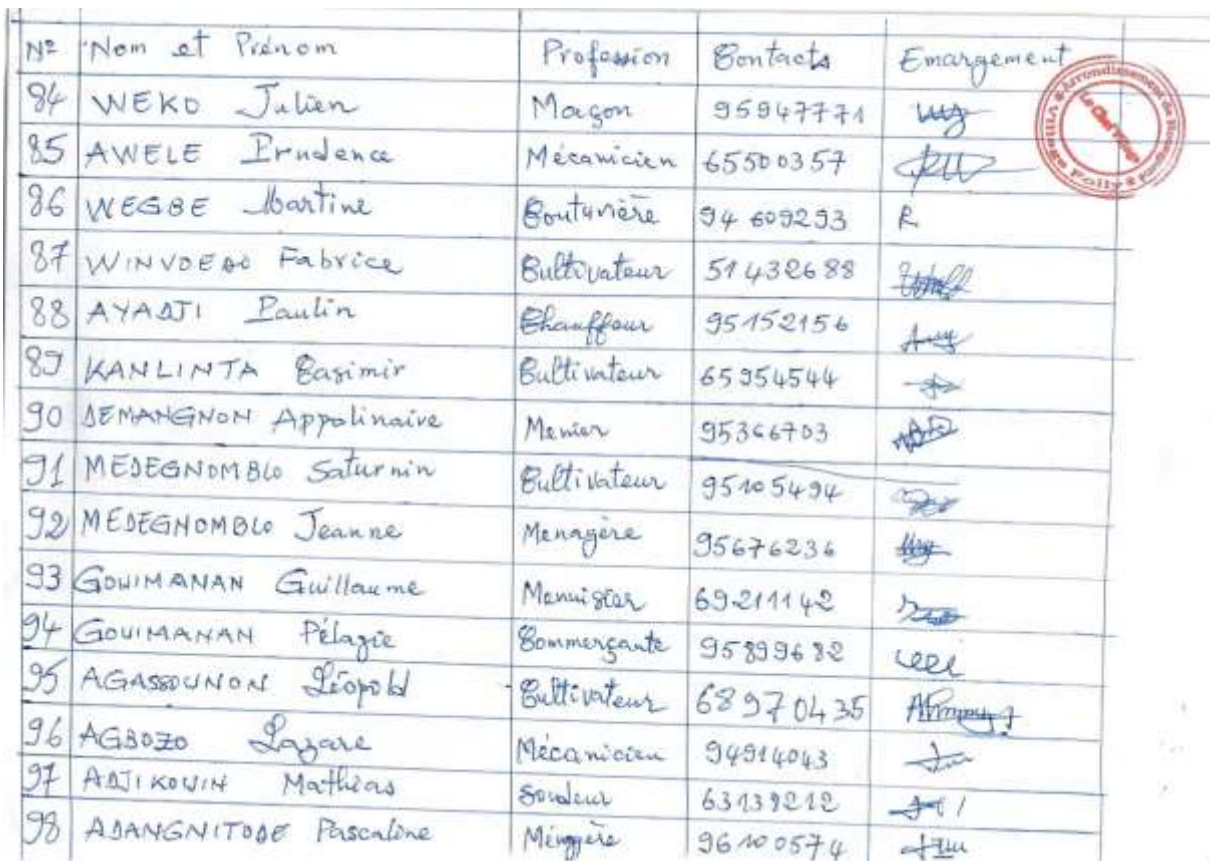 N° Nom et Prénom Profession Contacts Emargement
84 WEKO Julien Maçon 95947771
85 AWELE Prudence Mécanicien 65500357
86 WEGBE Martine Couturière 94609293 R
87 WINVOEDO Fabrice Cultivateur 51432688
88 AYADJI Paulin Chauffeur 95152156
89 KANLINTA Casimir Cultivateur 65954544
90 DEMANGNON Appolinaire 95366703
91 MEDEGNOMBLO Saturnin Cultivateur 95105494
92 MEDEGNOMBLO Jeanne Menagère 95676236
93 GOUIMANAN Guillaume Menuisier 69211142
94 GOUIMANAN Pélagie Commerçante 95899682
95 AGASSOUNON Léopold Cultivateur 68970435
96 AGBOZO Lazare Mécanicien 94914043
97 ADJIKOUIN Mathias Soudeur 63139212
98 ADANGNITODE Pascaline Ménagère 96100574
Le Chef Village